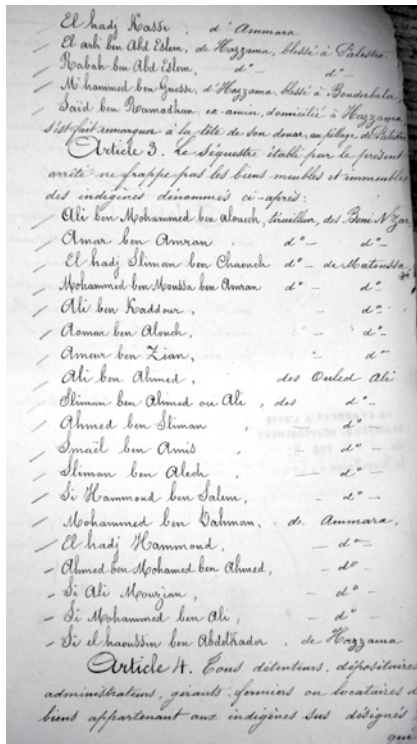 El hadj Kassi, d'Ammara
El arbi ben Abd Eslem, de Hazzama, blessé à Palestro.
Rabah ben Abd Eslem, d° — d° —
M'hammed ben Guessi, d'Hazzama, blessé à Bouderbala,
Saïd ben Ramadhan, ex-amin, domicilié à Hazzama
s'est fait remarquer à la tête de son douar, au pillage de Palestro
Article 3. Le séquestre établi par le présent
arrêté ne frappe pas les biens meubles et immeubles
des indigènes dénommés ci-après:
Ali ben Mohammed ben Alouech, tirailleur, des Beni N'zar,
Amar ben Amran, d° — d° —
El hadj Sliman ben Chaouch d° — de Matoussa
Mohammed ben Moussa ben Amran d° — d° —
Ali ben Kaddour, — d° —
Aomar ben Alouch, — d° —
Ameur ben Zian, — d° —
Ali ben Ahmed, des Ouled Ali
Sliman ben Ahmed ou Ali, des d° —
Ahmed ben Sliman, — d° —
Smaël ben Amis, — d° —
Sliman ben Alech, — d° —
Si Hammoud ben Salem, — d° —
Mohammed ben Dahman, de Ammara,
El hadj Hammoud, — d° —
Ahmed ben Mohamed ben Ahmed, — d° —
Si Ali Mouzian, — d° —
Si Mohammed ben Ali, — d° —
Si el haoussin ben Abdelkader, de Hazzama
Article 4. Tous détenteurs, dépositaires
administrateurs, gérants, fermiers ou locataires d
biens appartenant aux indigènes sus désignés
que